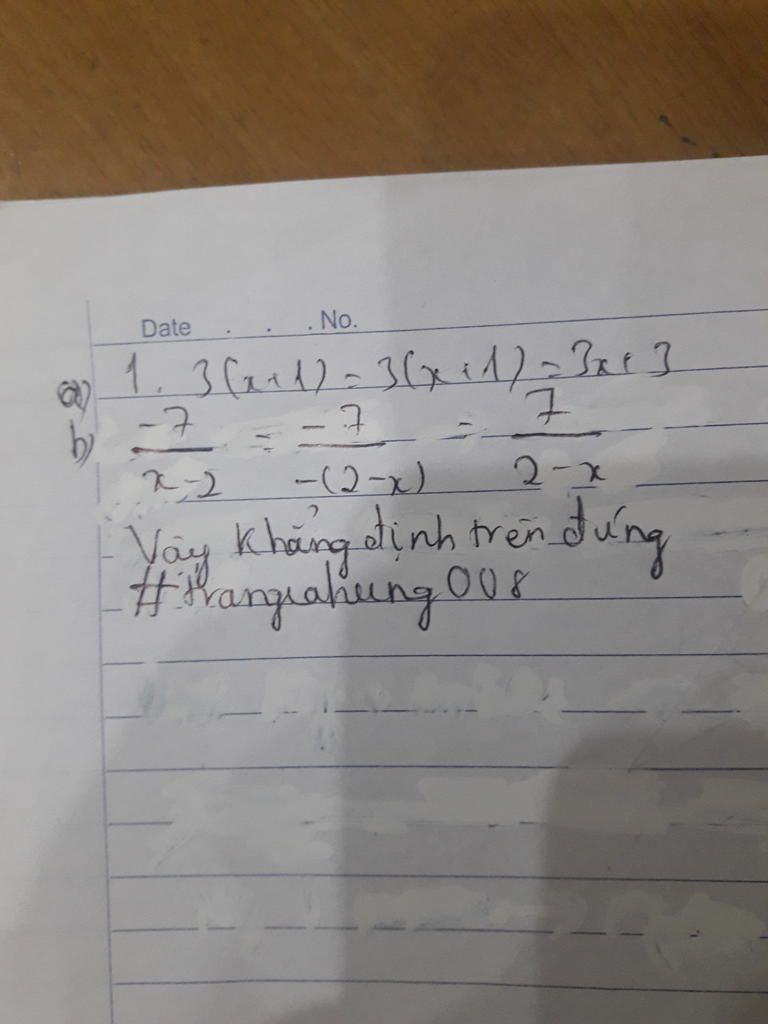 Date . . . No.
a) 1. 3(x+1) = 3(x+1) = 3x+3
b) -7/x-2 = -7/-(2-x) = 7/2-x
Vậy khẳng định trên đứng
#trangiahung008